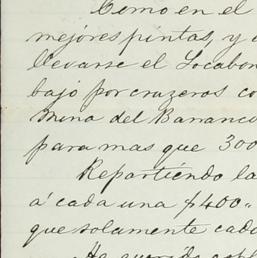 Como en el
mejores pintas, y
llevarse el Socabon
bajo por cruzeros co
Mina del Barranc
para mas que 300
Repartiendo la
á cada una $400.
que solamente cada
He querido